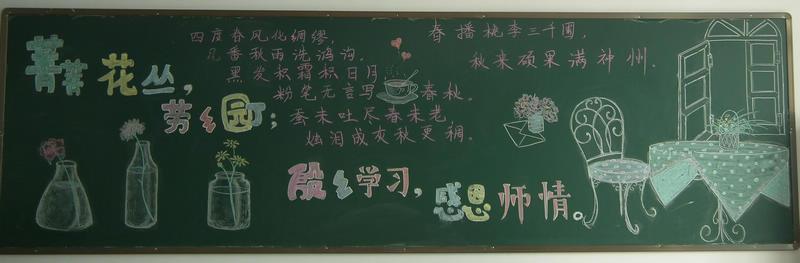 菁菁花丛，
芳々园；
四度春风化绸缪，
几番秋雨洗鸿沟。
黑发积霜积日月
粉笔无言写春秋。
蚕未吐尽春未老
烛泪成灰秋更稠。
春播桃李三千圃，
秋来硕果满神州．
殷々学习，
感恩师情。